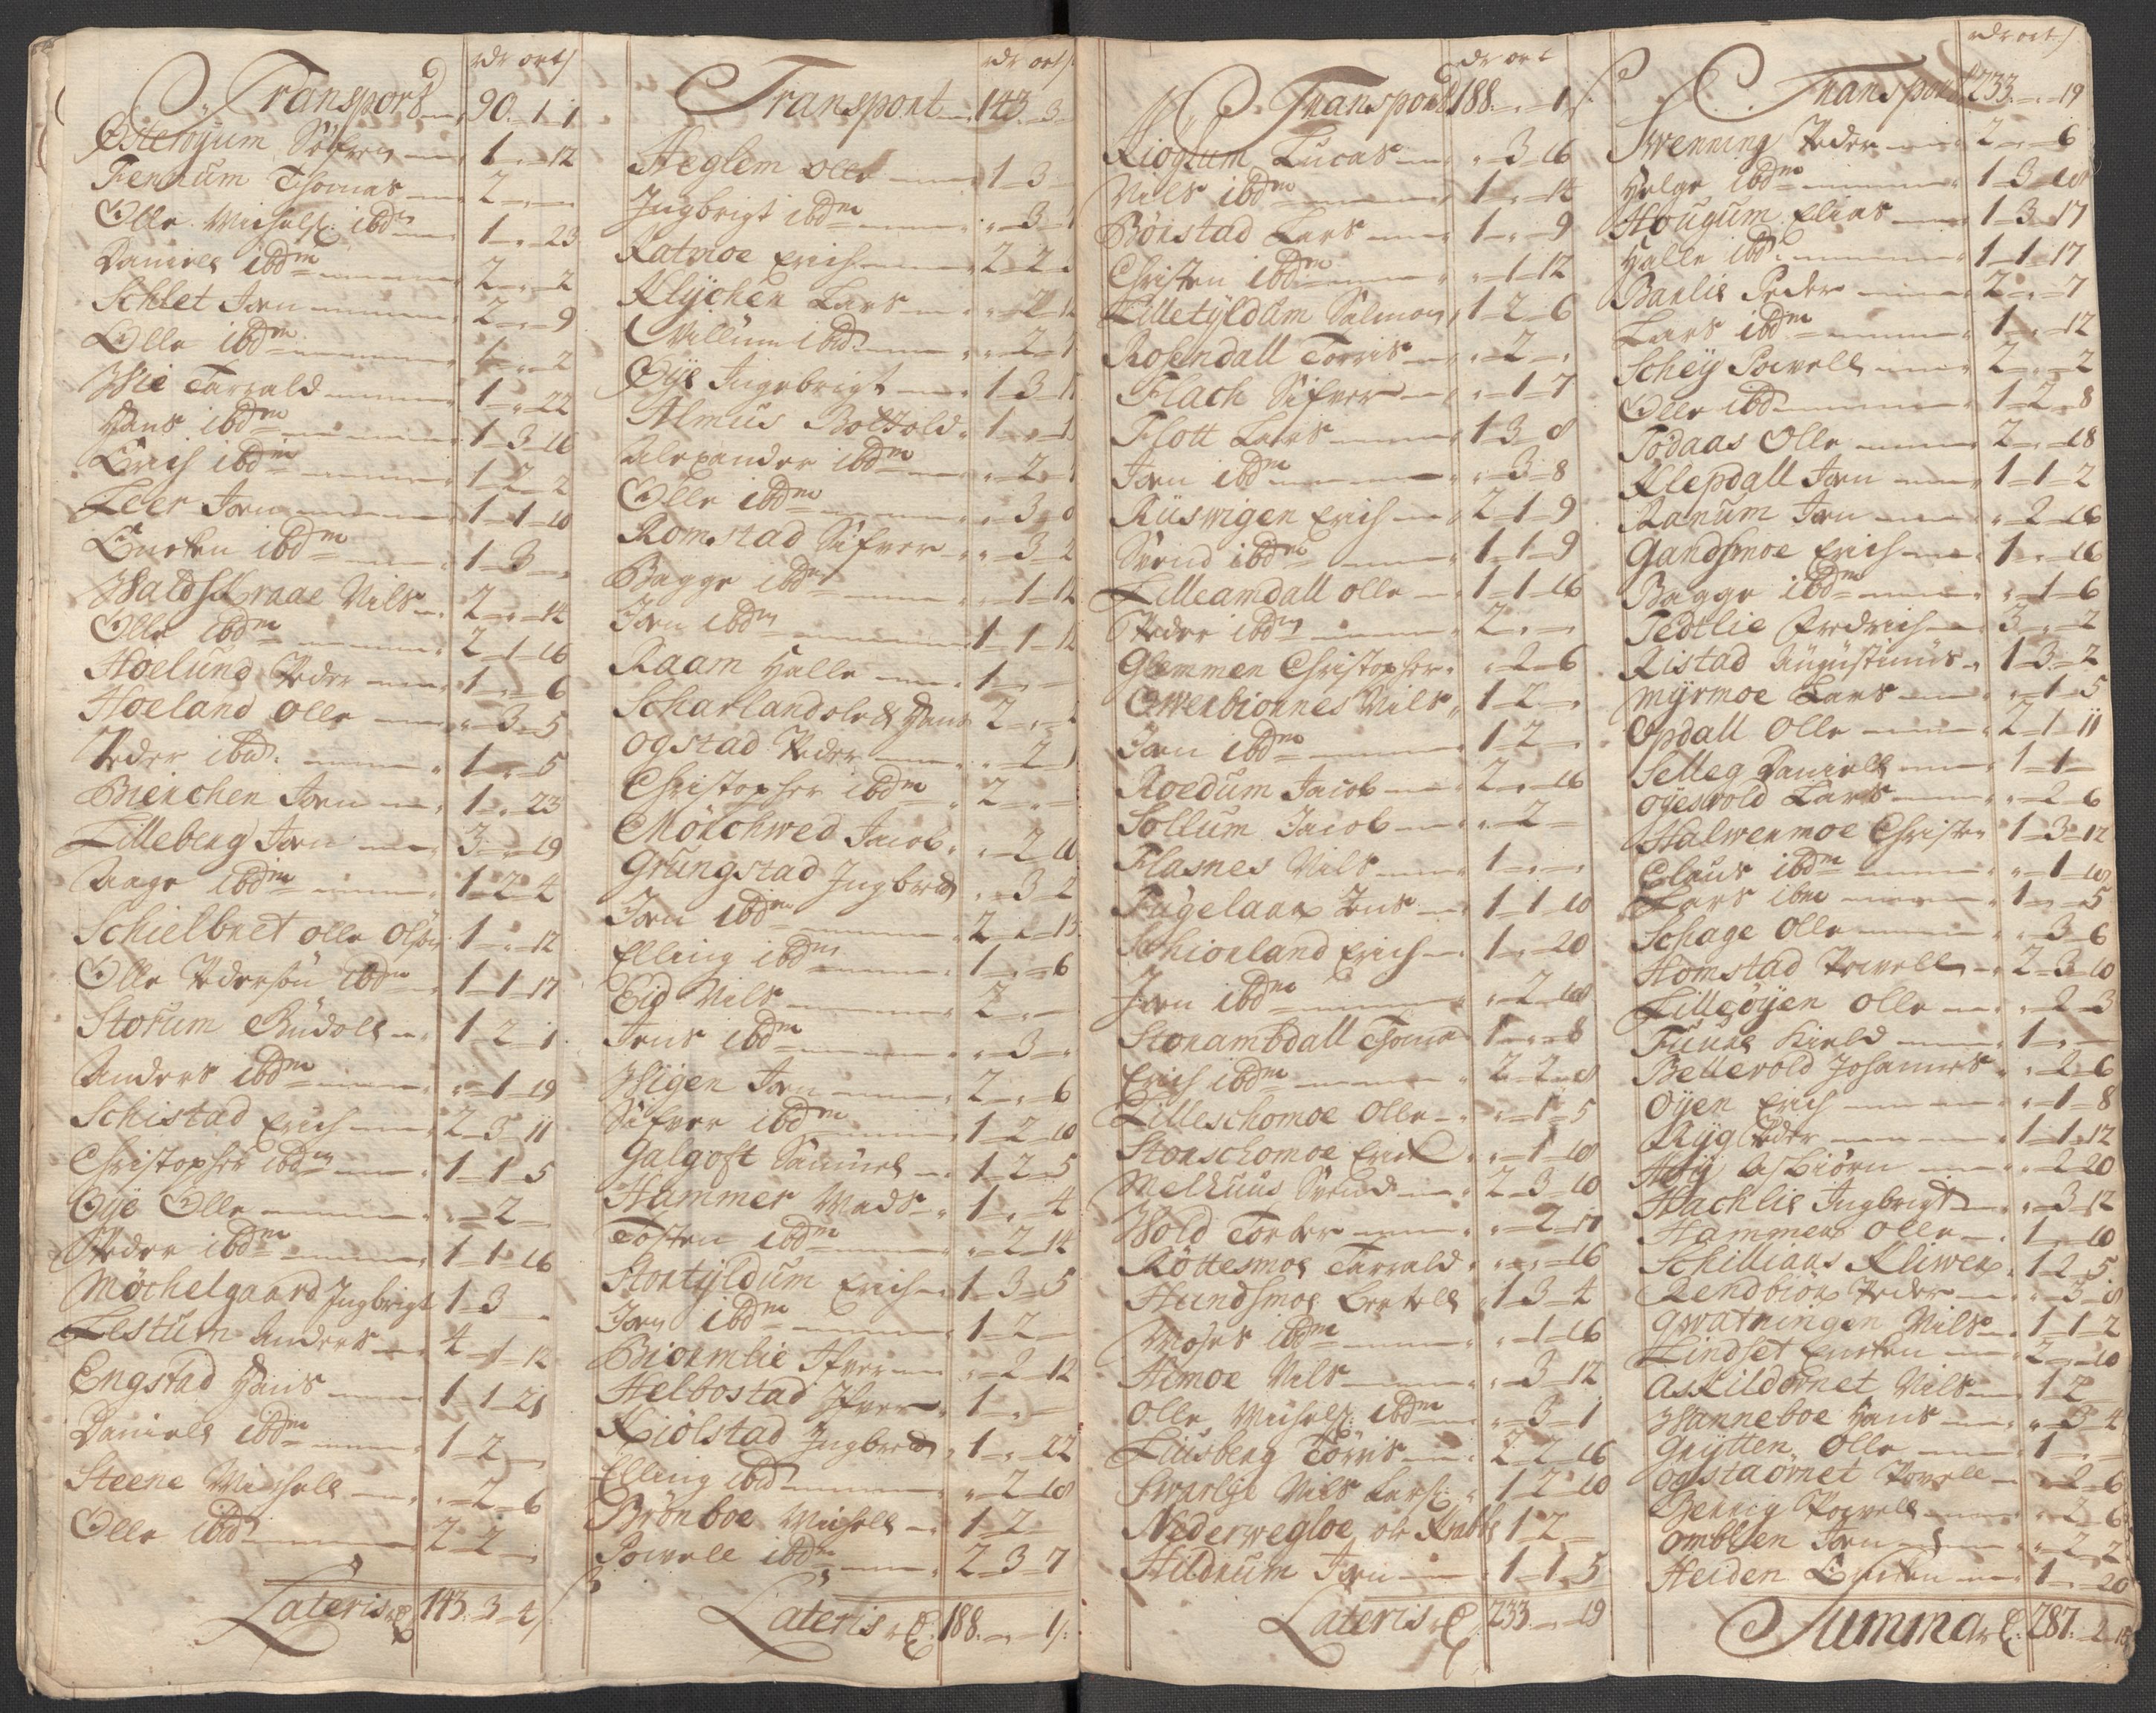 rdr ort s
Transport 90. 1. 1
Østerøyum Sifver 1 - " - 12
Fennum Thomas 2 - " -
Olle Michelß: ibdm 1 - " - 23
Daniel ibdm 2 - " - 2
Schlet Jon 2 - " - 9
Olle ibdm - " - 2
Wie Tarrald 1 - " - 22
Hans ibdm 1 - 3 - 16
Erich ibdm 1 - 2 - 2
Leer Jon 1 - 1 - 10
Encken ibdm 1 - 3 - "
Waldschraae Nils 2 - " - 14
Olle ibdm 2 - 1 - 16
Hoelund Peder 1 - " - 6
Hoeland Olle " - 3 - 5
Peder ibd: 1 - " - 5
Bienchen Jon 1 - " - 23
Lilleberg Jon 3 - " - 19
Aage ibdm 1 - 2 - 4
Schielbret Olle Olsøn 1 - " - 12
Olle Pedersøn ibdm 1 - 1 - 17
Storum Rudolf 1 - 2 - 1
Anders ibdm " - 1 - 19
Schistad Erich 2 - 3 - 11
Christopher ibdm 1 - 1 - 5
Øÿe Olle " - 2 -
Peder ibdm 1 - 1 - 16
Möchelgaard Ingbrigt 1 - 3
Lestum Anders 4 - 1 - 12
Engstad Hans 1 - 1 - 21
Daniel ibdm 1 - 2 -
Steene Michell " - 2 - 6
Olle ibid 2 - 2 -
Lateris 143. 3 - 4
rdr ort s
Transport 143. 3
Aeglem Olle 1 - 3
Ingbrigt ibdm " - 3
Katmoe Erich 2 - 2
Klÿchen Lars " - 2 - 12
Willum ibd " - 2
Øÿe Ingebrigt 1 - 3
Almus Botold 1 - "
Alexander ibdm " - 2
Olle ibdm " - 3
Romstad Sifver " - 3 - 2
Bagge ibdm " - 1 - 12
Jon ibdm 1 - 1 - 12
Raam Halle 1 - " -
Scharland Hans 2 - "
Ogstad Peder " - 2
Christopher ibdm 2 - " -
Mörchwed Jacob " - 2 - 10
Grungstad Ingbret " - 3 - 2
Jon ibdm 2 - " - 13
Elling ibdm 1 - " - 6
Eid Nils 2 - " -
Jens ibdm " - 3 - "
Wigen Jon 2 - " - 6
Sifver ibdm 1 - 2 - 10
Galgoft Samuel 1 - 2 - 5
Hammer Mads 1 - " - 4
Tosten ibdm " - 2 - 14
Stortÿldum Erich 1 - 3 - 5
Jon ibdm 1 - 2 -
Biörmlie Ifver " - 2 - 12
Helbostad Ifver 1 - " -
Kiolstad Ingbret 1 - " - 22
Elling ibid " - 2 - 10
Brönboe Michell 1 - 2 -
Powell ibdm 2 - 3 - 7
Lateris 188. - " - 1
rdr ort
Transport 188. - " - 1
Kiöglum Lucas " - 3 - 16
Nils ibdm 1 - " - 14
Börstad Lars 1 - " - 9
Christen ibdm " - 1 - 12
Lilletÿldum Salmon 1 - 2 - 6
Rosendall Torris " - 2 - "
Flach Sifver " - 1 - 7
Flott Lars 1 3 - 8
Jon ibdm " - 3 - 8
Rüswigen Erich 2 - 1 - 9
Svend ibdm 1 - 1 - 9
Lilleamdall Olle 1 - 1 - 16
Peder ibdm 2 - " -
Glemmen Christopher " - 2 - 6
Owerbiörnes Nils 1 - 2 -
Jon ibdm 1 - 2 -
Roedum Jacob 2 - " - 16
Sollum Jacob " - 2 -
Flasnes Nils 1 - " - "
Fugelaax Jens 1 - 1 - 10
Schiorland Erich 1 - " - 20
Jon ibdm " - 2 - 18
Storambdall Thomas 1 - " - 8
Erich ibdm 2 - 2 - 8
Lilleschomoe Olle " - 1 - 5
Storschomoe Erich " - 1 - 18
Melhuus Svend 2 - 3 - 10
Wold Torber " - 2 - 17
Röttesmoe Tarrald " - " - 16
Hundsmoe Bertell 1 3 - 4
Moses ibdm " - 1 - 16
Himoe Nils " - 3 - 12
Olle Michelß: ibdm " - 3 - 1
Lüsberg Törris 2 - 2 - 16
Swarlÿe Nils Larß: 1 - 2 - 10
Nederwegloe 1 - 2 -
Hildrum Jon 1 - 1 - 5
Lateris 233 - " - 19
rdr ort s
Transport 233. - " - 19
Swenning Peder 2 - " - 6
Helge ibdm 1 - 3 - 10
Hougum Elias 1 - 3 - 17
Halle ibd 1 - 1 - 17
Barlie Peder 2 - " - 7
Lars ibdm 1 - " - 12
Scheÿ Powell 2 - " - 2
Olle ibd 1 - 2 - 8
Todaas Olle 2 - " - 18
Klepdall Jon 1 - 1 - 2
Ranum Jon " - 2 - 16
Gandsmoe Erich 1 - " - 16
Bagge ibdm " - 1 - 6
Tedtlie Fredrich 3 - " - 2
Ristad Augustinus 1 - 3 - 2
Mÿrmoe Lars " - 1 - 5
Opdall Olle 2 - 1 - 11
Selleg Daniell 1 - 1 -
Oÿeswold Lars " - 2 - 6
Halwermoe Christen 1 - 3 - 12
Claus ibdm " - 1 - 10
Lars ibm 1 - " - 5
Schage Olle " - 3 - 6
Homstad Powell 2 - 3 - 10
Lilleöÿen Olle " - 2 - 3
Fuure Kield 1 - " -
Bellerold Johannes " - 2 - 6
Oÿen Erich " - 1 - 8
Rÿg Peder 1 - 1 - 12
Høÿ Asbiörn " - 2 - 20
Hachlie Ingbrigt " - 3 - 12
Hammer Olle 1 - " - 10
Schilliaas Kliwer 1 - 2 - 5
Rendbiör Peder " - 3 - 8
Gratningen Nils 1 - 1 - 2
Lindset Encken 2 - " - 10
Askildörnet Nils 1 2
Wanneboe Hans " - 3 - 4
Grÿtten Olle 1 - " -
Ogstaörnet Powell " - 2 - 6
Powell " - 2 - 6
Jon " - 2 - 2
Heiden Encken 1 - " - 20
Summa 287. - 2 -